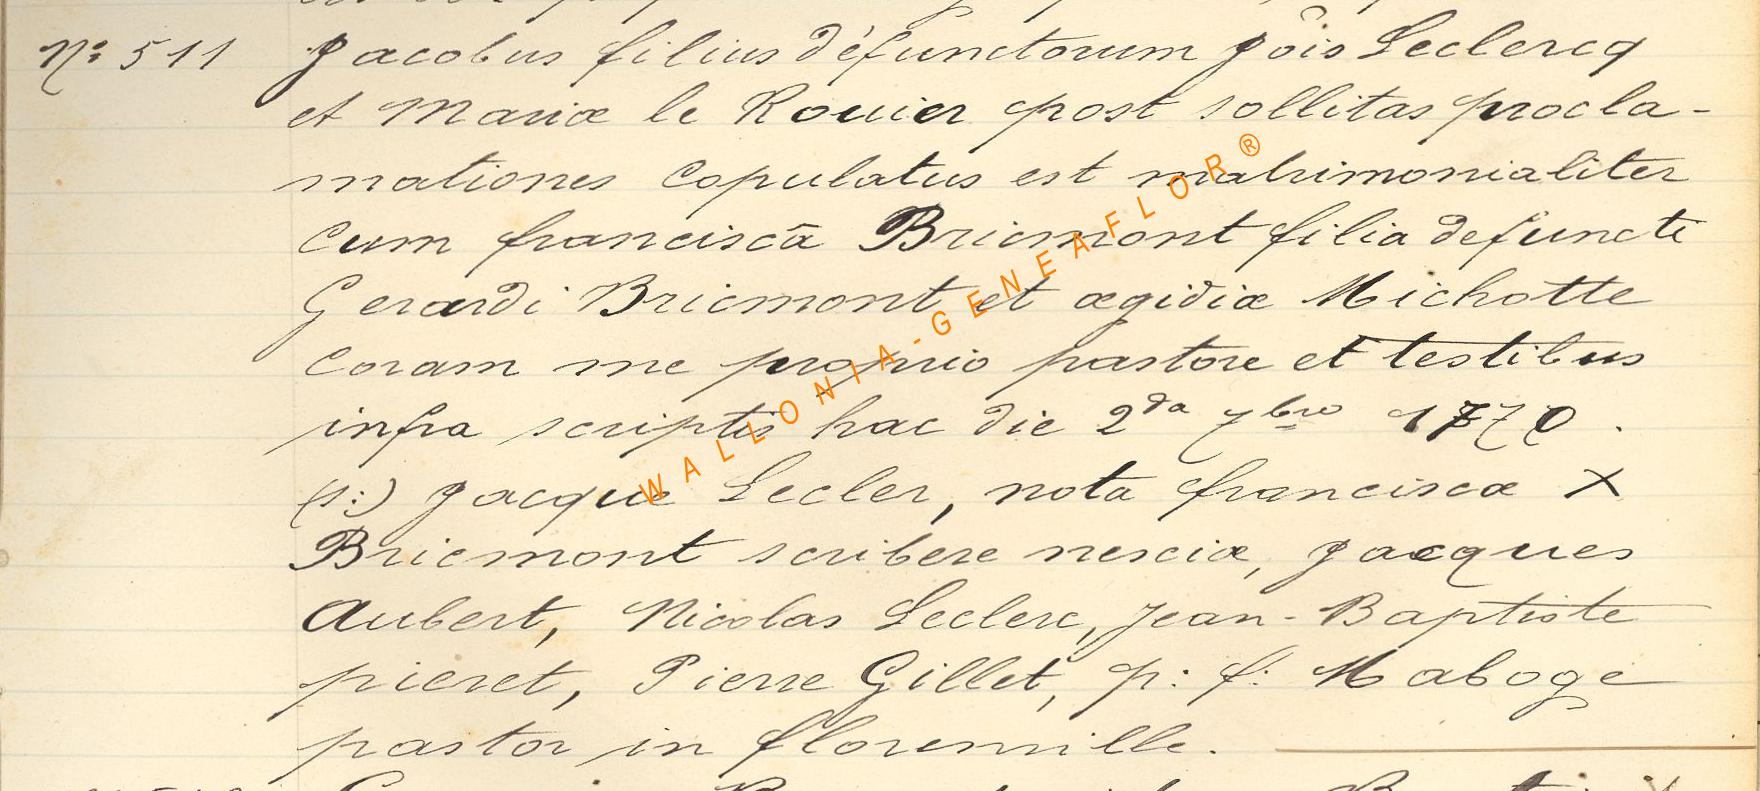 Nº 511 Jacobus filius défunctorum Jõis Leclercq
et Mariæ le Rouier post sollitas procla-
mationes copulatus est matrimonialiter
cum franciscā Bricmont filia defuncti
Gerardi Bricmont et ægidiæ Michotte
coram me proprio pastore et testibus
infra scriptis hac die 2da 7bre 1770.
(s:) Jacque Lecler, nota franciscæ X
Bricmont scribere nesciæ, Jacques
Aubert, Nicolas Leclerc, Jean-Baptiste
pieret, Pierre Gillet, p: f: Maboge
pastor in florenville.
WALLONIA-GENEAFLOR®